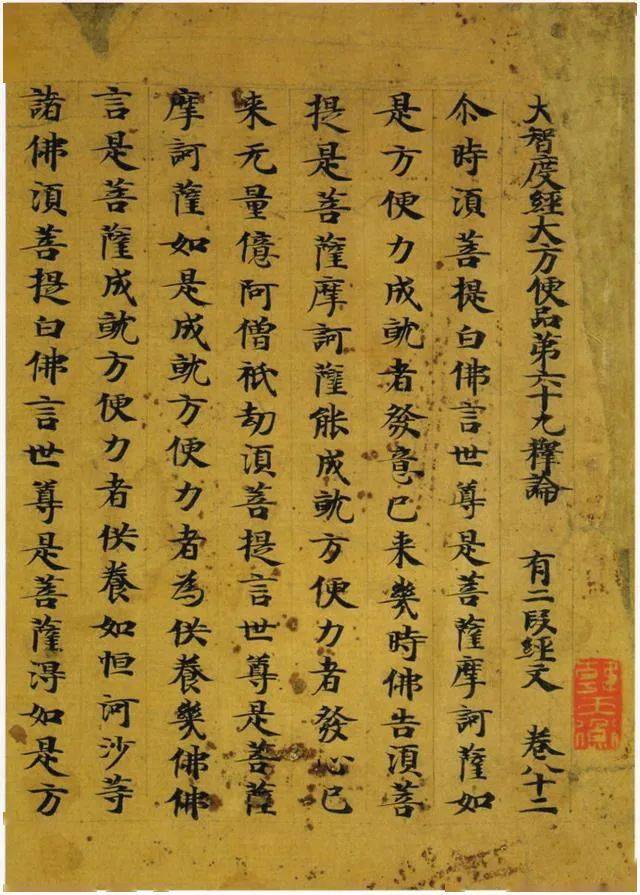 大智度經大方便品第六十九釋論 有二段經文 卷八十二
尒時湏菩提白佛言世尊是菩薩摩訶薩如
是方便力成就者發意已来幾時佛告湏菩
提是菩薩摩訶薩能成就方便力者發心已
来无量億阿僧祇劫湏菩提言世尊是菩薩
摩訶薩如是成就方便力者為供養幾佛佛
言是菩薩成就方便力者供養如恒河沙等
諸佛湏菩提白佛言世尊是菩薩淂如是方